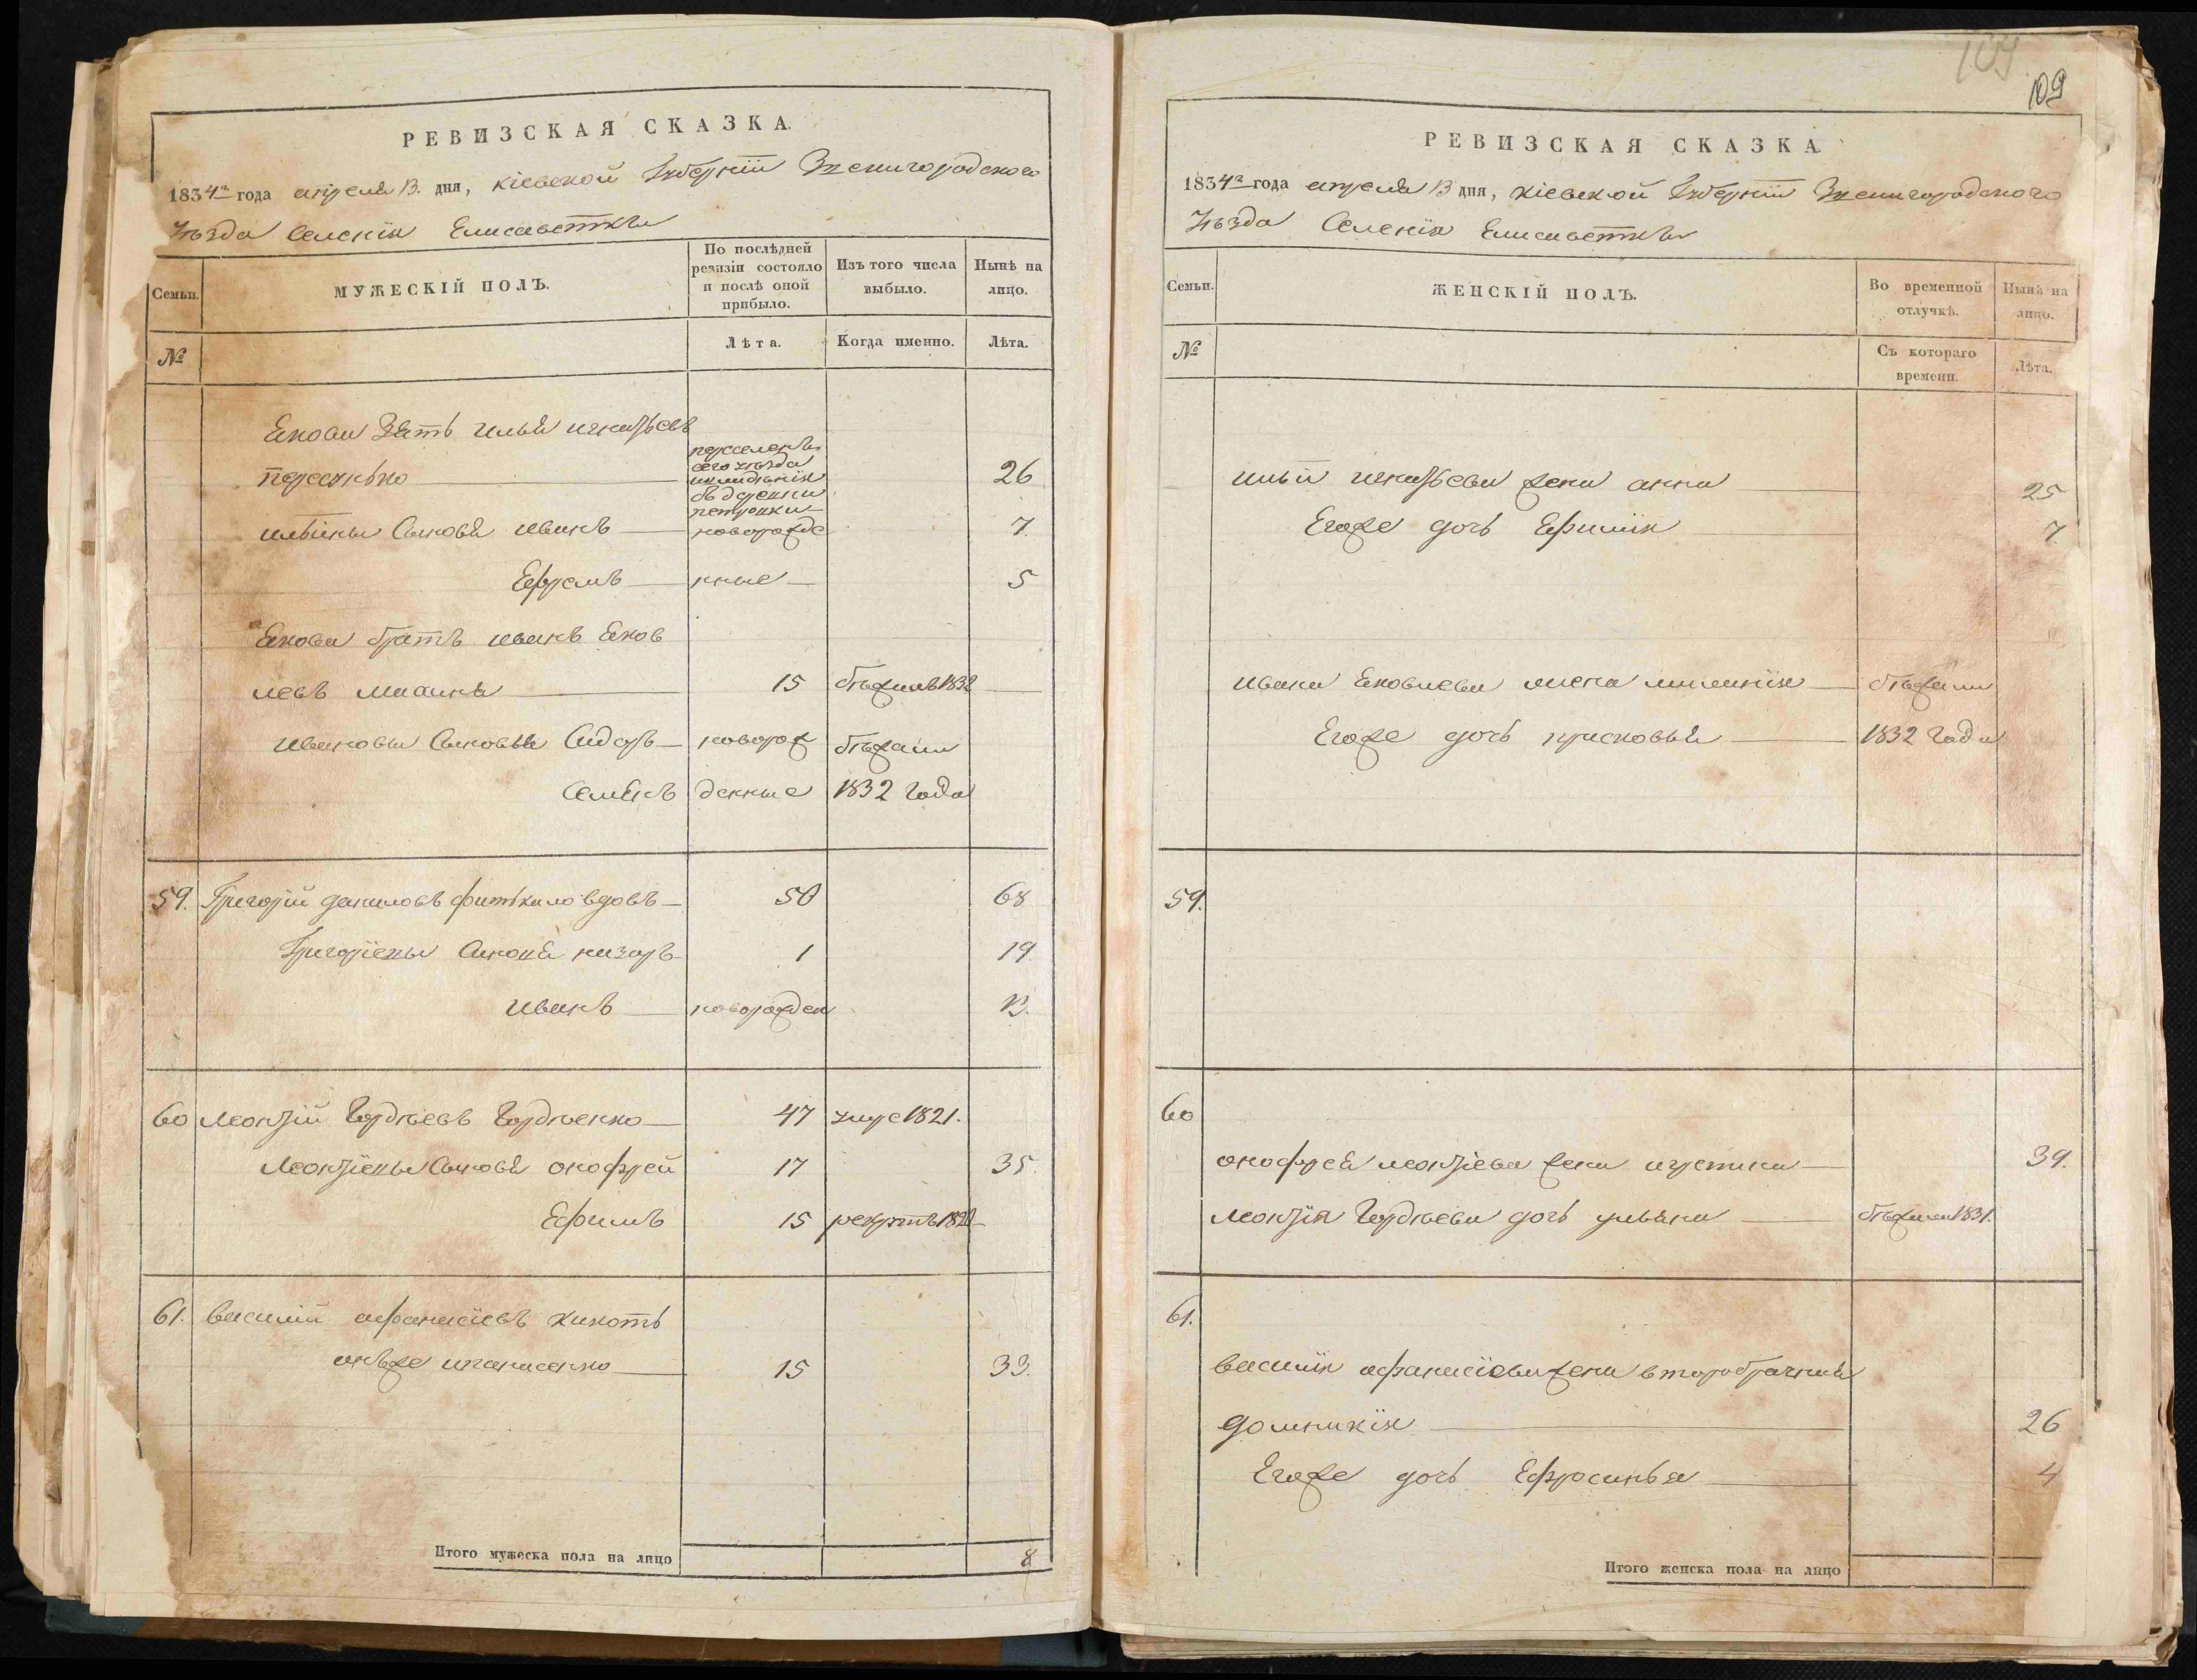 РЕВИЗСКАЯ СКАЗКА.
1834го года апреля 13. дня, кіевской Губерніи Звенигородского
Уѣзда Селенія Елисаветки
Семьи.
МУЖЕСКІЙ ПОЛЪ.
По послѣдней ревизіи состояло и послѣ оной прибыло.
Изъ того числа выбыло.
Нынѣ на лицо.
№
Лѣта.
Когда именно.
Лѣта.
Якова Зять илья игнатьевъ
пересѣко переселенъ сего уѣзда изъ деревни петрики 26
ильины Сыновя иванъ новорожде 7
Ефремъ нные 5
Якова братъ иванъ Яков
левъ 15 бѣжалъ 1832
ивановы Сыновья Сидоръ новорож бѣжали
Семенъ денные 1832 года
59. Григорій даниловъ вдовъ 50 68
Григоріевы Сыновя назаръ 1 19
иванъ новорожден 13.
60 леонтій Гордѣевъ Гордѣенко 47 умре 1821.
Леонтіевы Сыновя онофрей 17 35
Ефимъ 15 рекрутъ
61. василій афанасіевъ кикоть
онъже 15 33.
Итого мужеска пола на лицо 8
109
109
РЕВИЗСКАЯ СКАЗКА.
1834го года апреля 13 дня, кіевской Губерніи Звенигородского
Уѣзда Селенія Елисаветки
Семьи.
ЖЕНСКІЙ ПОЛЪ.
Во временной отлучкѣ.
Нынѣ на лицо.
№
Съ котораго времени.
Лѣта.
ильи игнатьева жена анна 25
Егоже дочь Ефимія 7
ивана Яковлева жена меланія бѣжали
Егоже дочь присковья 1832 года
59.
60
онофрея леонтіева жена 39.
леонтія Гордѣева дочь ульяна бѣжала 1831.
61.
василія афанасіева жена второбрачная
домникія 26
Егоже дочь Ефросинья 4
Итого женска пола на лицо